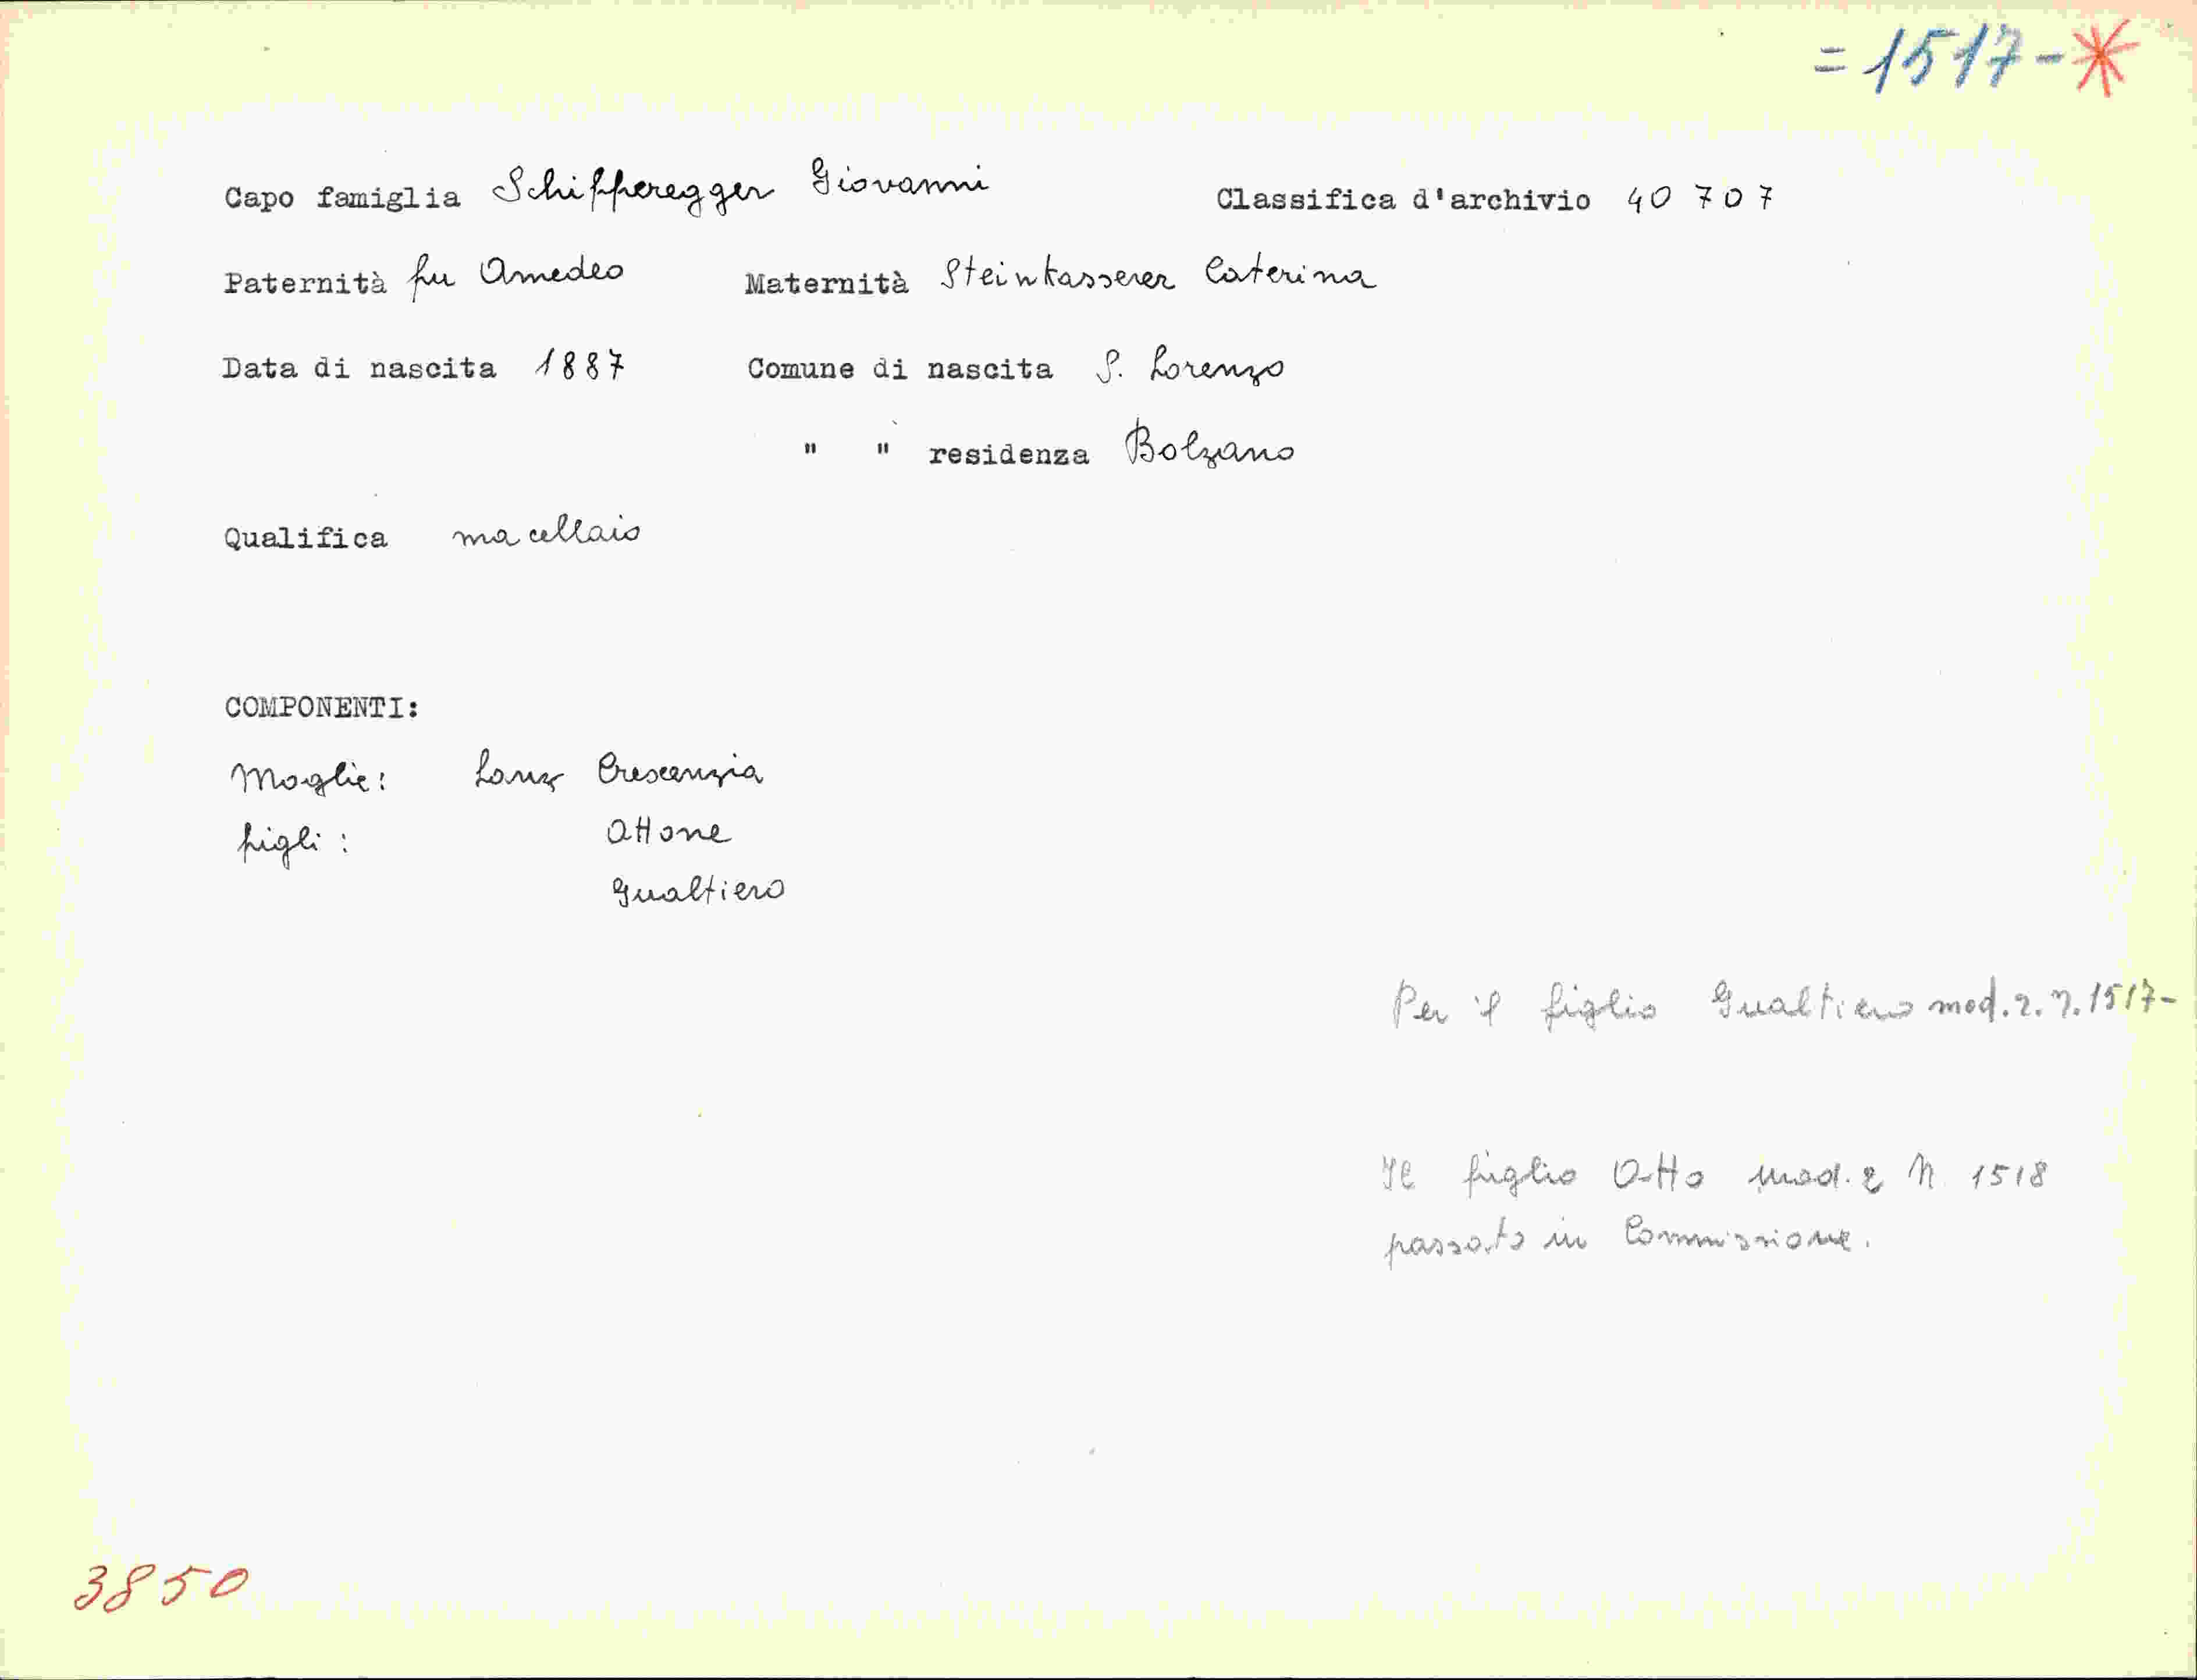 = 1517 - *
Capo famiglia Schifferegger Giovanni Classifica d'archivio 40707
Paternità fu Amedeo Maternità Steinkasserer Caterina
Data di nascita 1887 Comune di nascita S. Lorenzo
" " residenza Bolzano
Qualifica macellaio
COMPONENTI:
Moglie: Lanz Crescenzia
figli: Ottone
Gualtiero
Per il figlio Gualtiero mod. 2. n. 1517-
Il figlio Otto mod. 2 N 1518
passato in Commissione.
3850